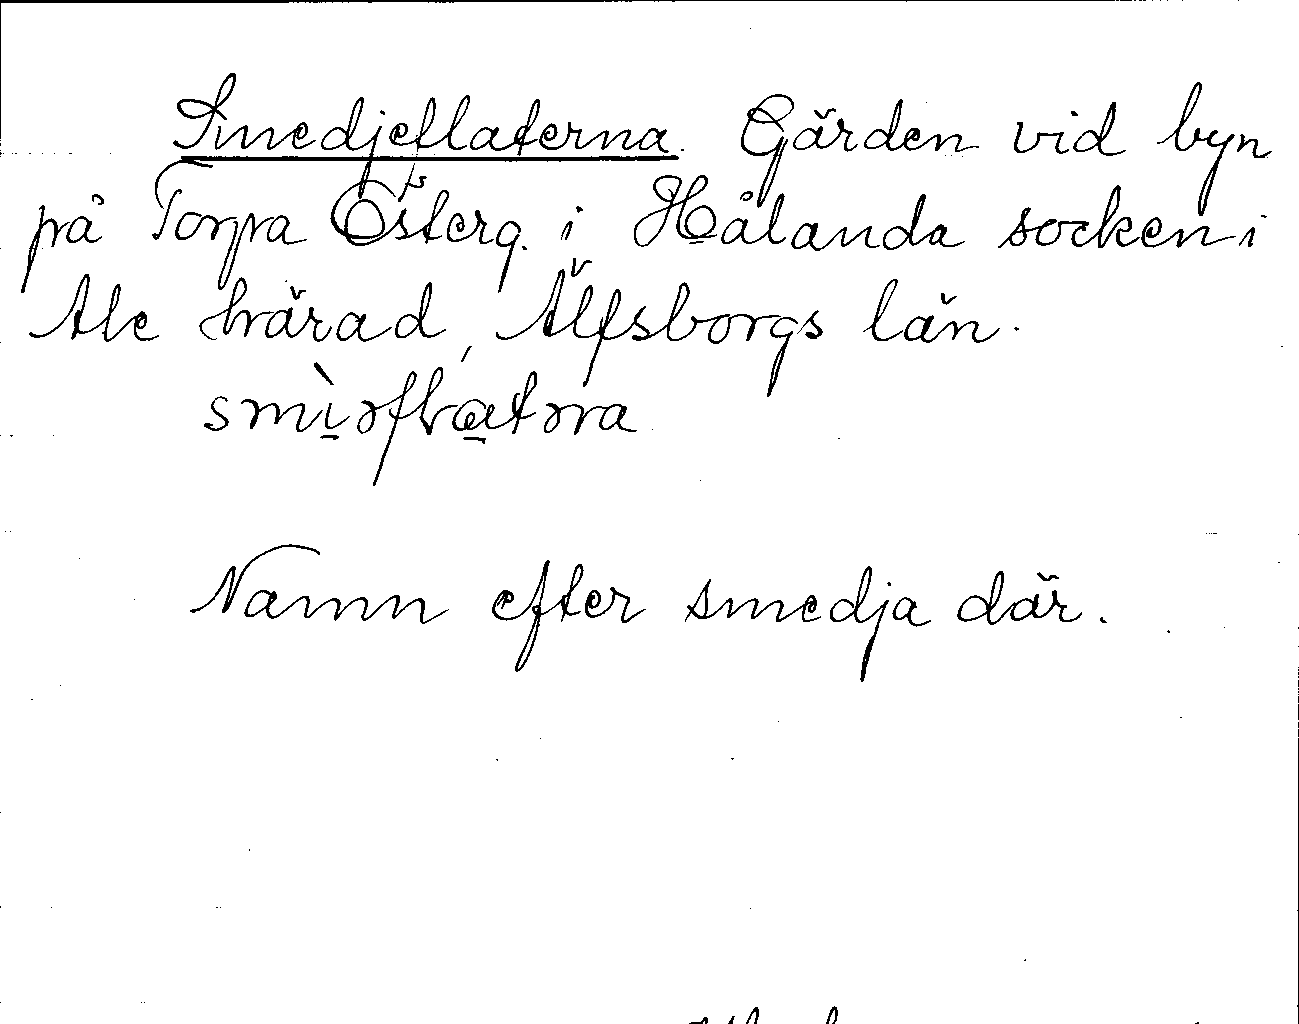 Smedjeflaterna. Gärden vid byn
på Torpa Österg. i Hålanda socken i
Ale härad, Älfsborgs län.
smìəflatəra
Namn efter smedja där.